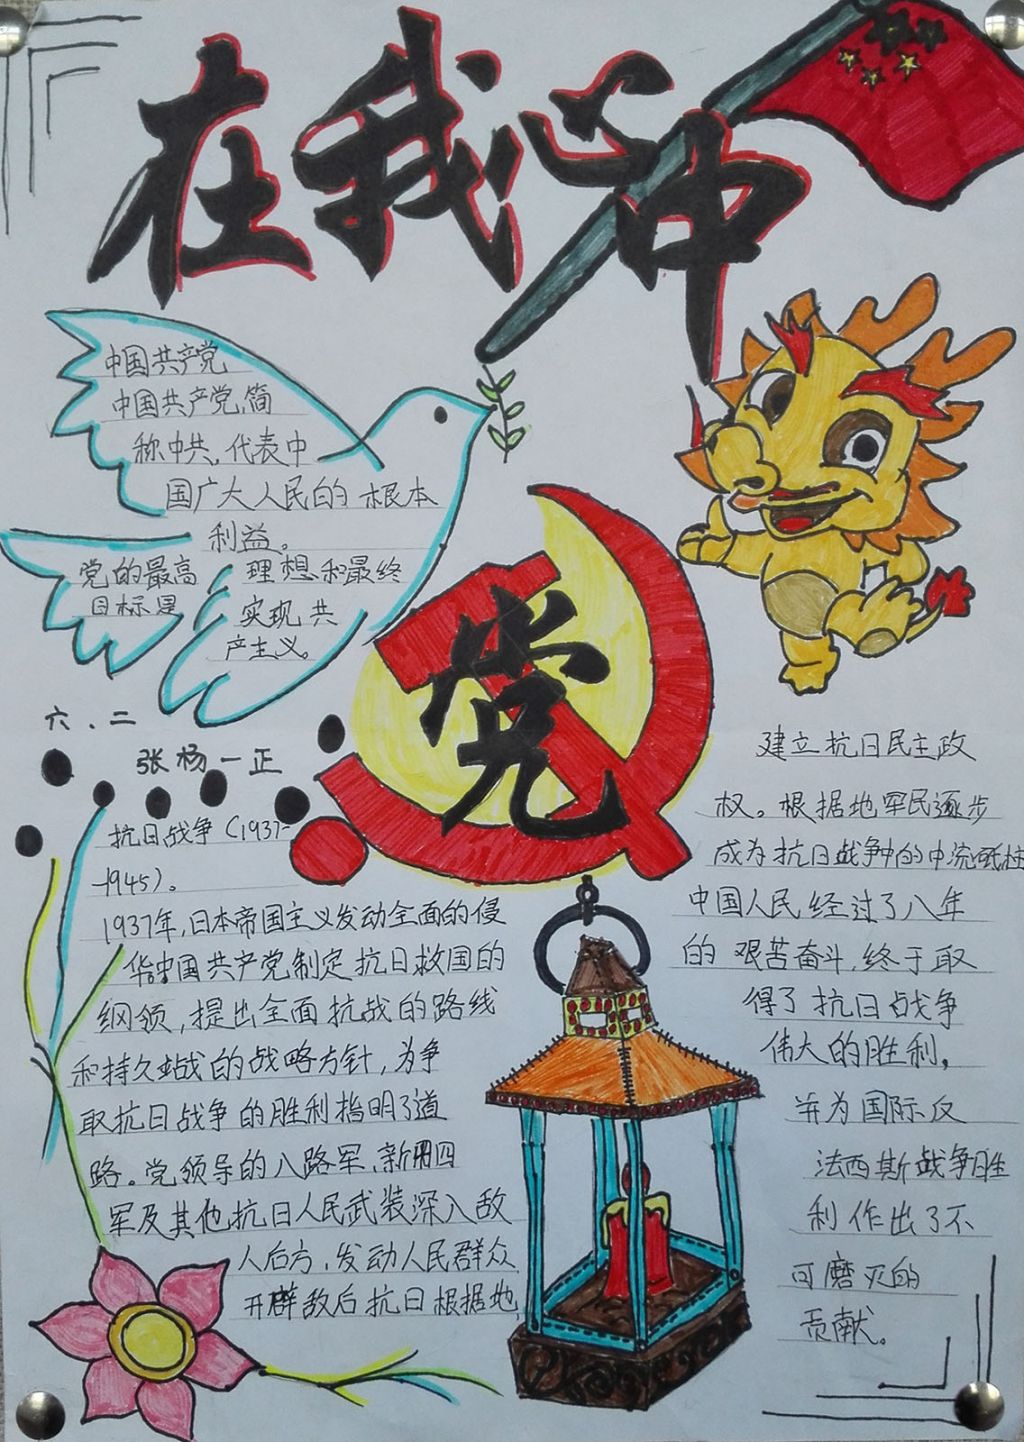 在我心中
中国共产党
中国共产党,简
称中共,代表中
国广大人民的根本
利益。
党的最高理想和最终
目标是实现共
产主义。
党
六.二
张杨一正
抗日战争(1937-
-1945)。
1937年,日本帝国主义发动全面的侵
华。中国共产党制定抗日救国的
纲领,提出全面抗战的路线
和持久战的战略方针,为争
取抗日战争的胜利指明了道
路。党领导的八路军、新四
军及其他抗日人民武装深入敌
人后方,发动人民群众
开辟敌后抗日根据地,
建立抗日民主政
权。根据地军民逐步
成为抗日战争中的中流砥柱
中国人民经过了八年
的艰苦奋斗,终于取
得了抗日战争
伟大的胜利,
并为国际反
法西斯战争胜
利作出了不
可磨灭的
贡献。